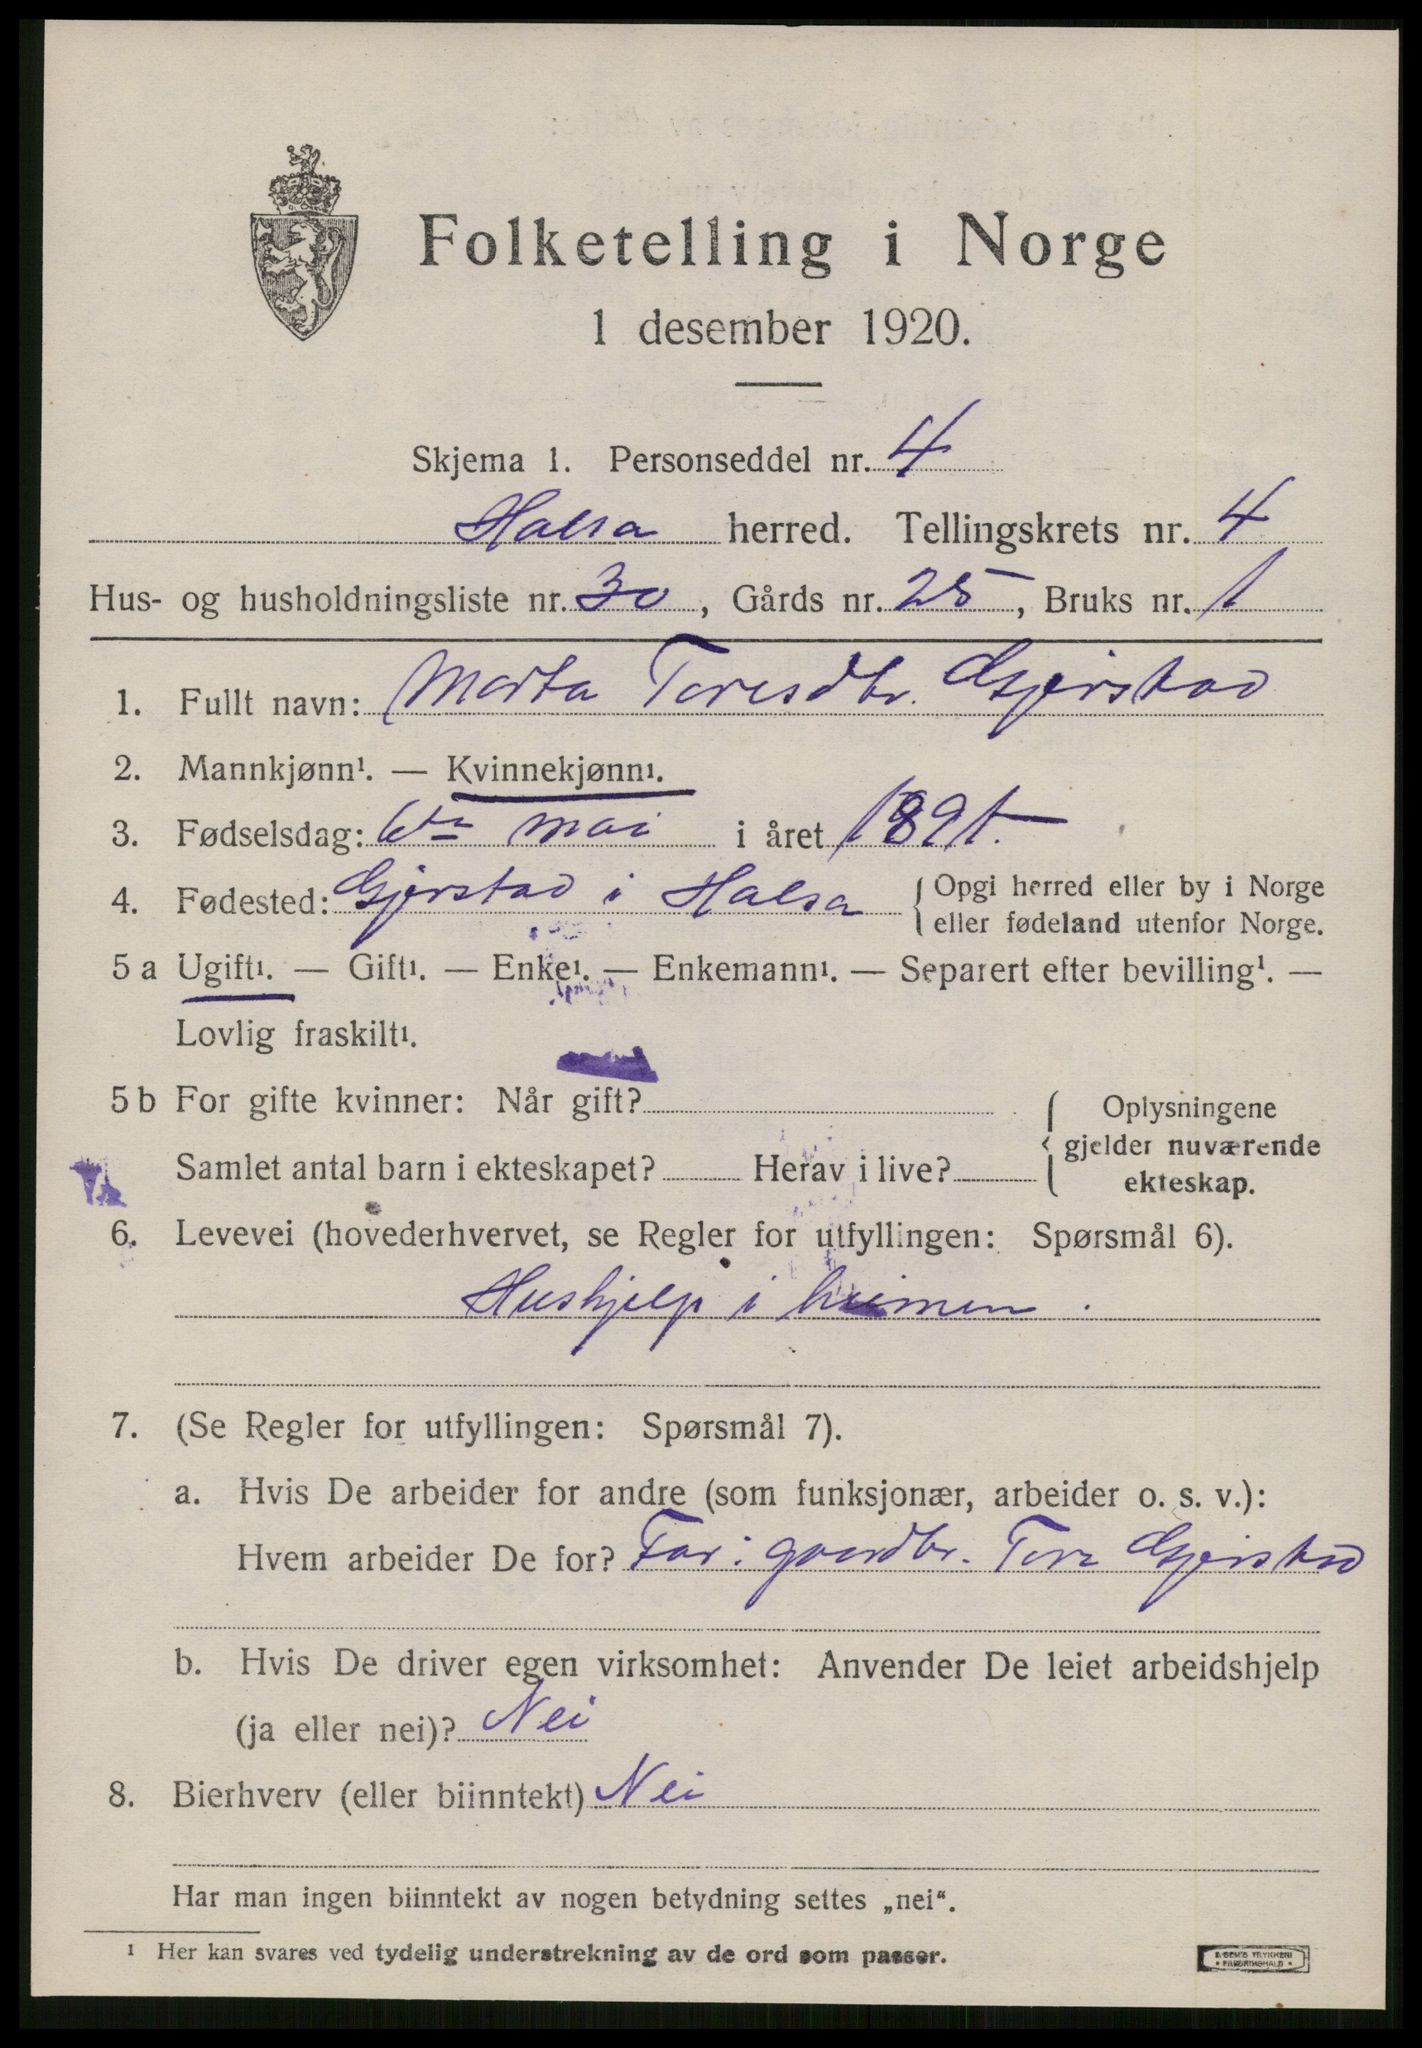 Folketelling i Norge
1 desember 1920.
Skjema 1. Personseddel nr. 4
Halsa herred. Tellingskrets nr. 4
Hus- og husholdningsliste nr. 30, Gårds nr. 25, Bruks nr. 1
1. Fullt navn: Marta Toresdtr. Gjerstad
2. Mannkjønn¹. — Kvinnekjønn¹.
3. Fødselsdag: 6te mai i året 1891.
4. Fødested: Gjerstad i Halsa { Opgi herred eller by i Norge
eller fødeland utenfor Norge.
5 a Ugift¹. — Gift¹. — Enke¹. — Enkemann¹. — Separert efter bevilling¹. —
Lovlig fraskilt¹.
5 b For gifte kvinner: Når gift? { Oplysningene
gjelder nuværende
Samlet antal barn i ekteskapet? Herav i live?
ekteskap.
6. Levevei (hovederhvervet, se Regler for utfyllingen: Spørsmål 6).
Hushjelp i heimen.
7. (Se Regler for utfyllingen: Spørsmål 7).
a. Hvis De arbeider for andre (som funksjonær, arbeider o. s. v.):
Hvem arbeider De for? Far: gaardbr. Tore Gjerstad
b. Hvis De driver egen virksomhet: Anvender De leiet arbeidshjelp
(ja eller nei)? Nei
8. Bierhverv (eller biinntekt) Nei
Har man ingen biinntekt av nogen betydning settes „nei“.
¹ Her kan svares ved tydelig understrekning av de ord som passer.